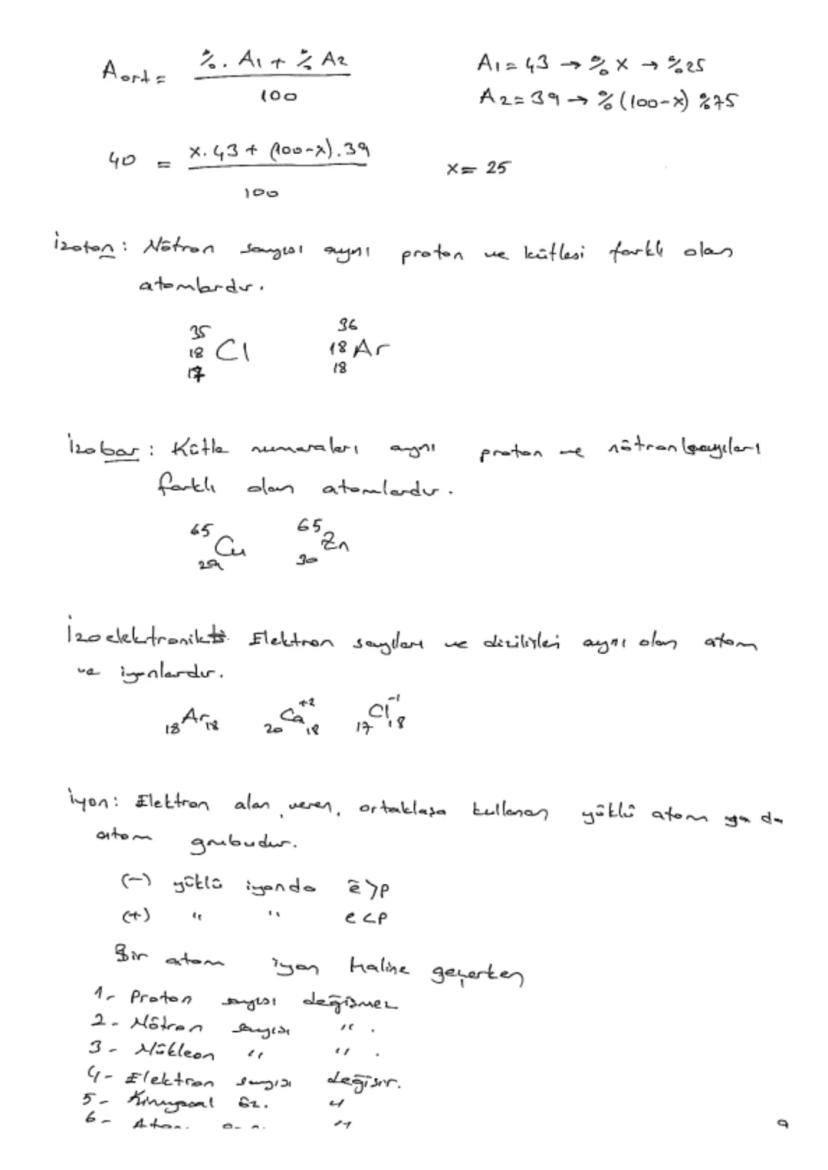 A ort = %. A1 + % A2 / 100
A1 = 43 → % x → %25
A2 = 39 → % (100-x) %75
40 = x.43 + (100-x).39 / 100
x = 25
İzoton : Nötron sayısı aynı proton ve kütlesi farklı olan
atomlardır.
35 36
18 Cl 18 Ar
17 18
İzobar : Kütle numaraları aynı proton ve nötron sayıları
farklı olan atomlardır.
65 65
Cu Zn
29 30
İzoelektronik: Elektron sayıları ve dizilişleri aynı olan atom
ve iyonlardır.
18 Ar 18 20 Ca+2 18 17 Cl-1 18
İyon : Elektron alan, veren, ortaklaşa kullanan yüklü atom ya da
atom grubudur.
(-) yüklü iyonda e > p
(+) " " e < p
Bir atom iyon haline geçerken
1- Proton sayısı değişmez
2- Nötron sayısı " .
3- Nükleon " " .
4- Elektron sayısı değişir.
5- Kimyasal öz. "
6- Atom "
9